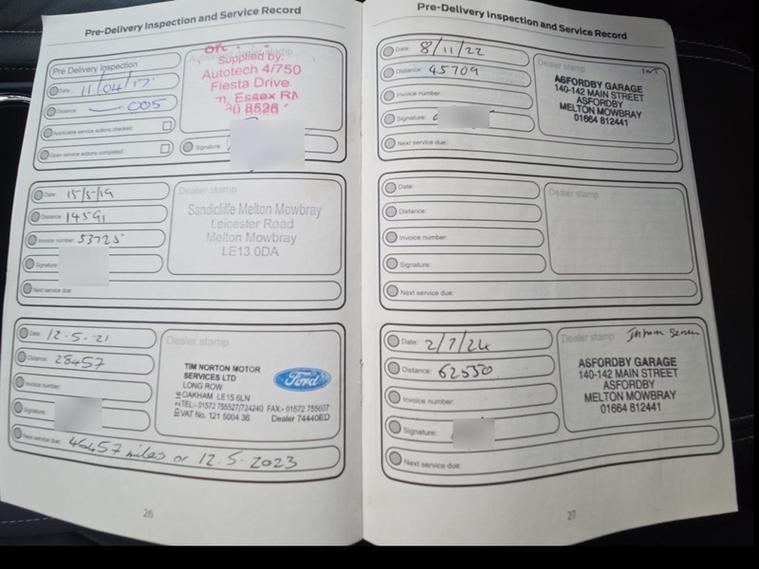 Pre-Delivery Inspection and Service Record
Pre Delivery Inspection
Date: 11/04/17
Distance: 005
Applicable service actions checked:
Open service actions completed:
Signature:
Supplied by:
Autotech 4/750
Fiesta Drive
Essex
8526
Date: 15/5/19
Distance: 14591
Invoice number: 53725
Signature:
Next service due:
Dealer stamp
Sandicliffe Melton Mowbray
Leicester Road
Melton Mowbray
LE13 0DA
Date: 12.5.21
Distance: 28457
Invoice number:
Signature:
Next service due: 46457 miles or 12.5.2023
Dealer stamp
TIM NORTON MOTOR
SERVICES LTD
LONG ROW
OAKHAM LE15 6LN
TEL:- 01572 755527/724240 FAX:- 01572 755607
VAT No. 121 5004 36 Dealer 74440ED
Ford
26
Pre-Delivery Inspection and Service Record
Date: 8/11/22
Distance: 45709
Invoice number:
Signature:
Next service due:
Dealer stamp INT
ASFORDBY GARAGE
140-142 MAIN STREET
ASFORDBY
MELTON MOWBRAY
01664 812441
Date:
Distance:
Invoice number:
Signature:
Next service due:
Dealer stamp
Date: 2/7/24
Distance: 62550
Invoice number:
Signature:
Next service due:
Dealer stamp
ASFORDBY GARAGE
140-142 MAIN STREET
ASFORDBY
MELTON MOWBRAY
01664 812441
27